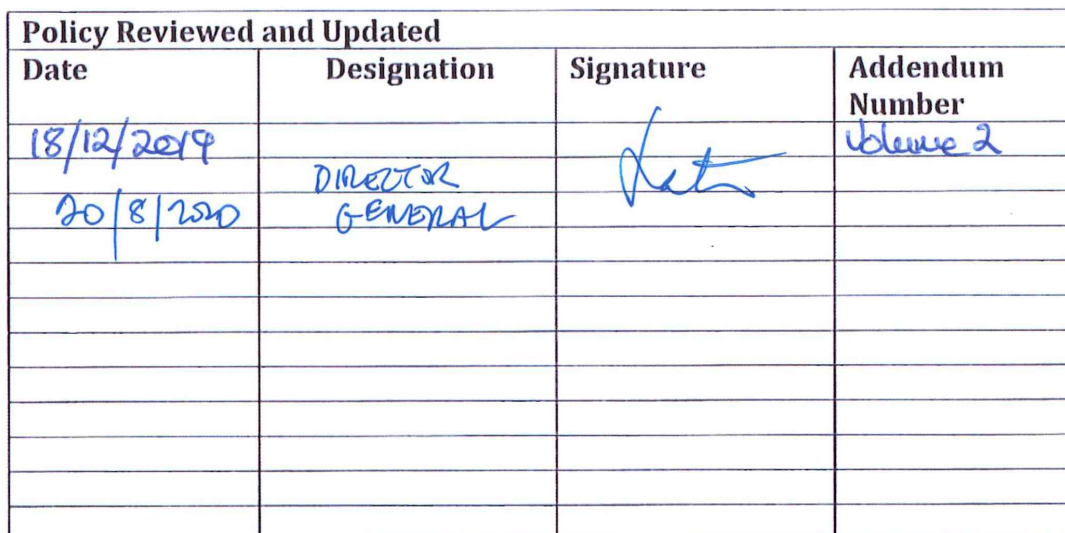 Policy Reviewed and Updated
Date Designation Signature Addendum
Number
18/12/2019 Volume 2
DIRECTOR
20/8/2020 GENERAL